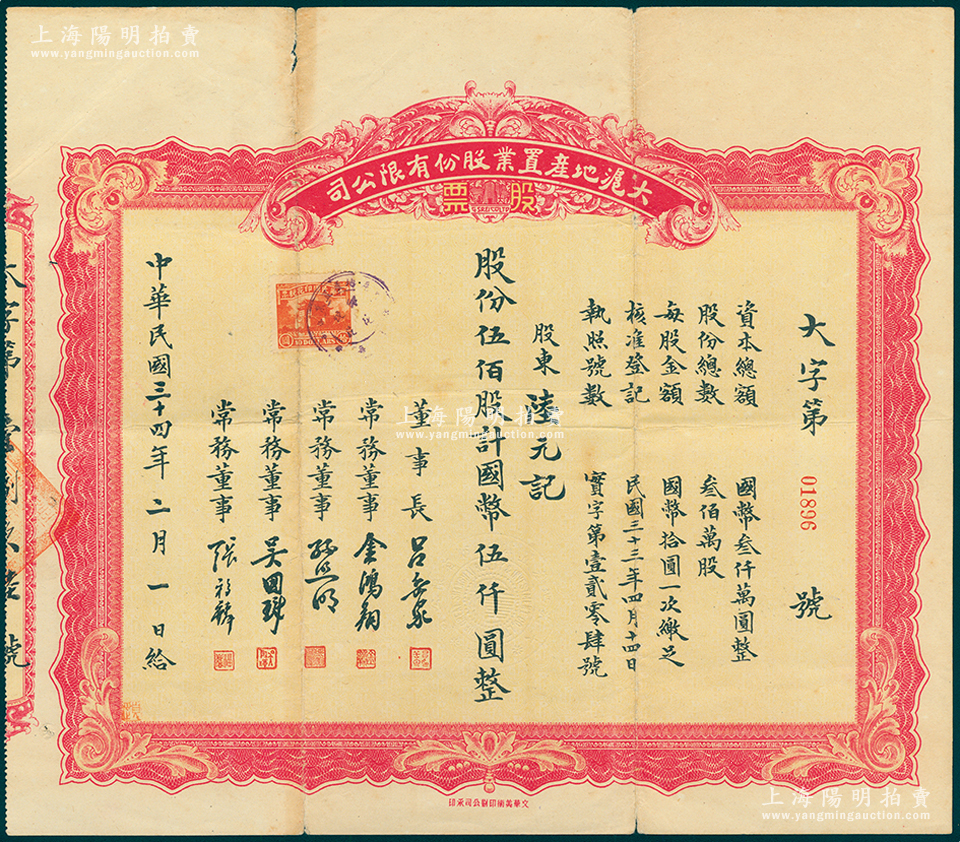 上海陽明拍賣
www.yangmingauction.com
大滬地產置業股份有限公司
股票
大字第 01896 號
資本總額 國幣叁仟萬圓整
股份總數 叁佰萬股
每股金額 國幣拾圓一次繳足
核准登記 民國三十三年四月十四日
執照號數 實字第壹貳零肆號
股東 陸元記
股份伍佰股計國幣伍仟圓整
董事長
常務董事 金鴻翔
常務董事
常務董事 吳國璋
常務董事
中華民國三十四年二月一日給
大字第
號
上海陽明拍賣
www.yangmingauction.com
文華美術印製公司承印
上海陽明拍賣
www.yangmingauction.com